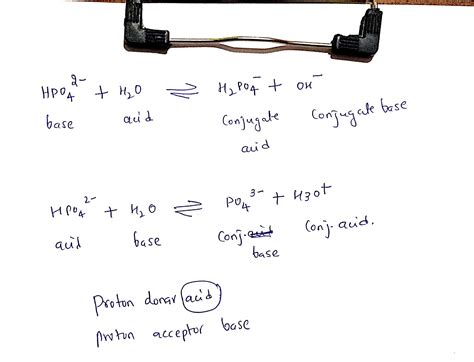 HPO₄²⁻ + H₂O ⇌ H₂PO₄⁻ + OH⁻
base acid Conjugate acid Conjugate base
HPO₄²⁻ + H₂O ⇌ PO₄³⁻ + H3O⁺
acid base Conj. base Conj. acid.
Proton donar acid
Proton acceptor base